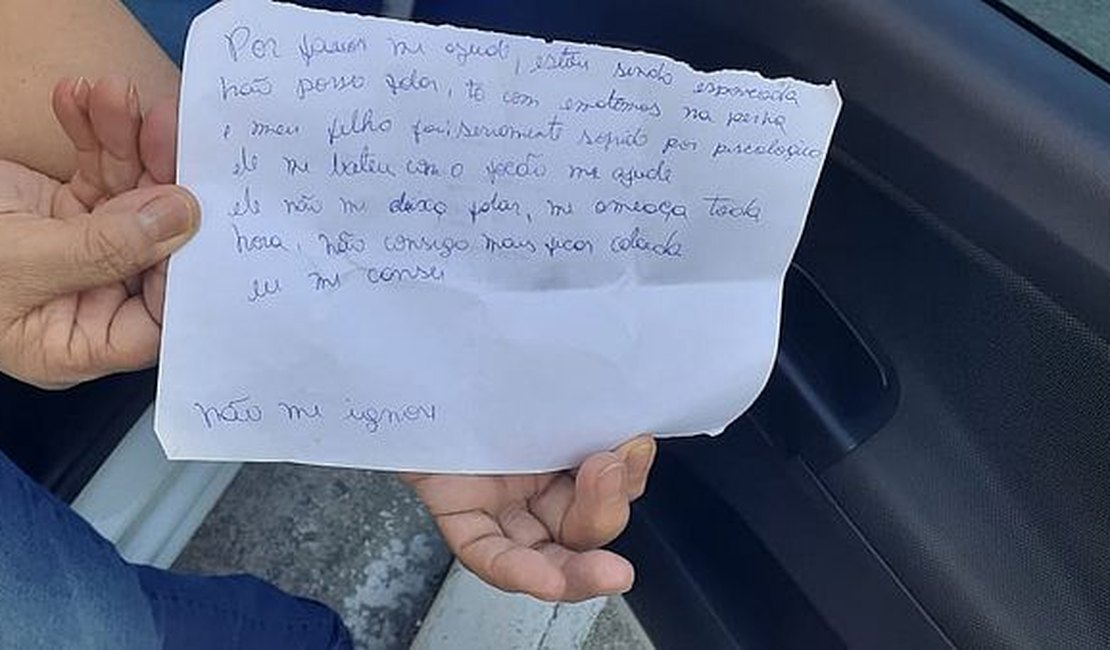 Por favor me ajude, estou sendo espancada
não posso falar, tô com ematomas na perna
e meu filho foi seriamente por piscologico
ele me bateu com o facão me ajude
ele não me dexa falar, me ameaça toda
hora, não consigo mais ficar calada
eu me
não me ignore